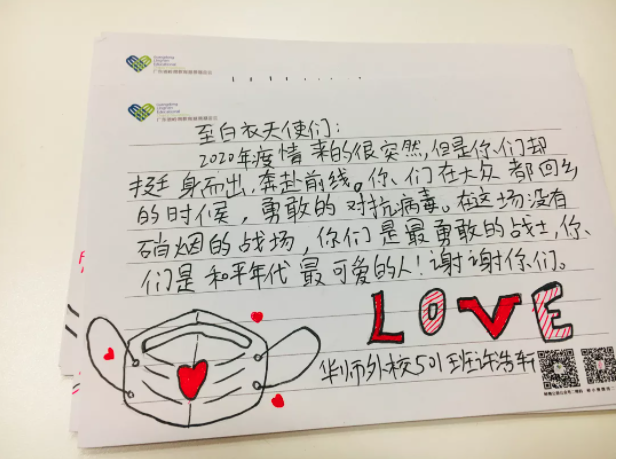 至白衣天使们:
2020年疫情来的很突然,但是你们却
挺身而出,奔赴前线。你们在大众都回乡
的时候,勇敢的对抗病毒。在这场没有
硝烟的战场,你们是最勇敢的战士,你
们是和平年代最可爱的人!谢谢你们。
LOVE
华师外校501班许浩轩